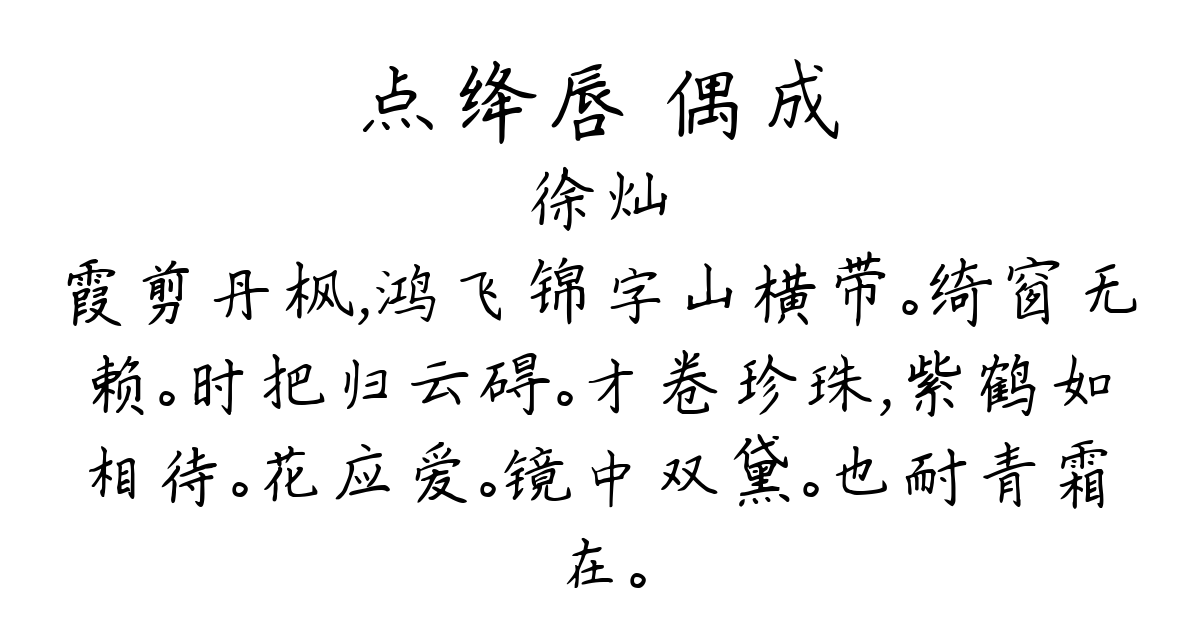 点绛唇 偶成
徐灿
霞剪丹枫,鸿飞锦字山横带。绮窗无
赖。时把归云碍。才卷珍珠,紫鹤如
相待。花应爱。镜中双黛。也耐青霜
在。